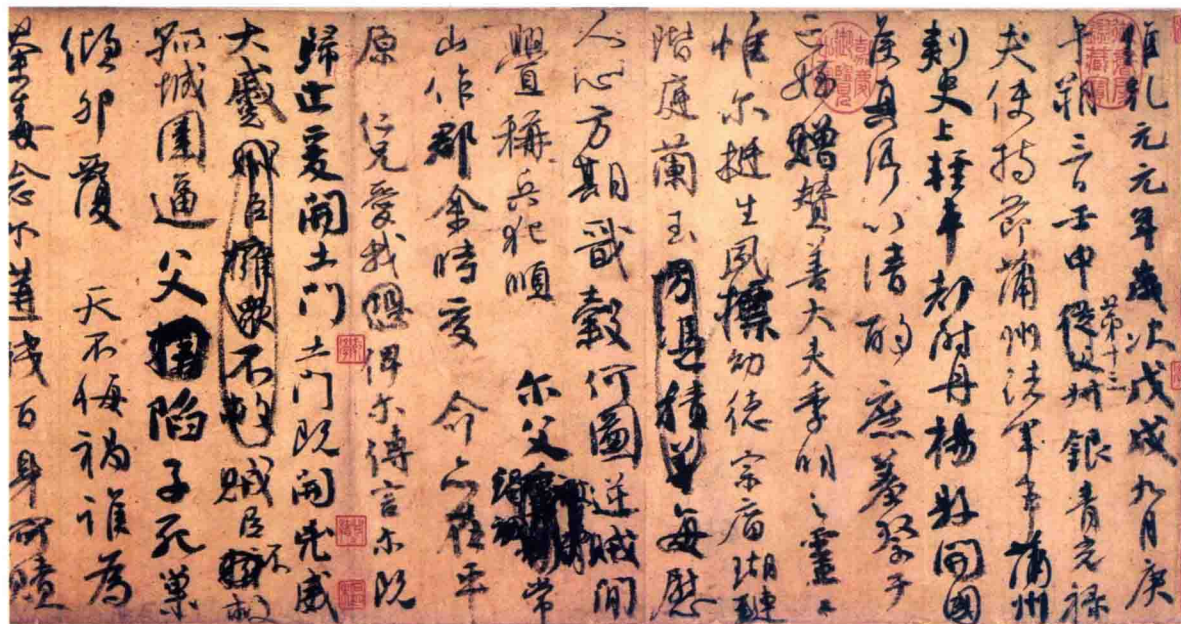 維乾元元年歲次戊戌九月庚
午朔三日壬申第十三從父銀青光祿
夫使持節蒲州諸軍事蒲州
刺史上輕車都尉丹楊縣開國
侯真卿以清酌庶羞祭于
亡姪贈贊善大夫季明之靈曰
惟尔挺生夙標幼德宗廟瑚璉
階庭蘭玉方憑積善每慰
人心方期戩穀何圖逆賊間
舋稱兵犯順 尔父竭誠常
山作郡余時受 命亦在平
原 仁兄愛我俾尔傳言尔既
歸止爰開土門土門既開凶威
大蹙賊臣擁眾不救賊臣不救
孤城圍逼父陷子死巢
傾卵覆 天不悔禍誰為
荼毒念尔遘殘百身何贖